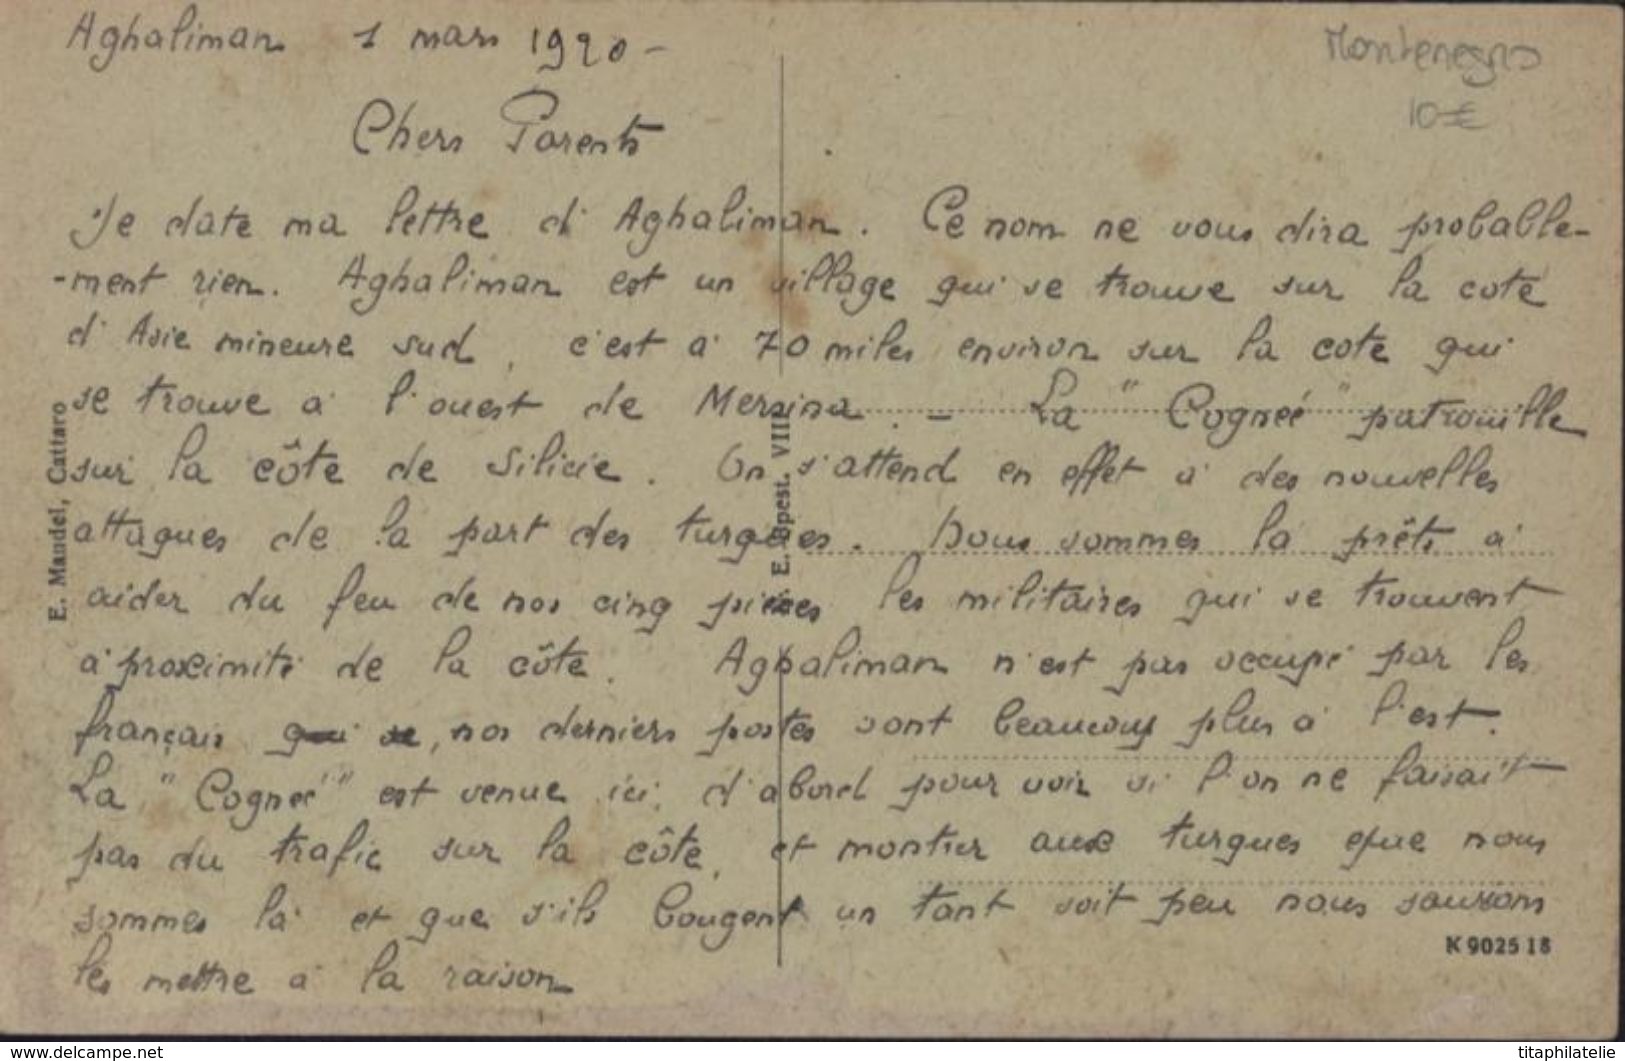 Aghaliman 1 mars 1920-
Montenegro
10€
Chers Parents
Je date ma lettre d'Aghaliman. Ce nom ne vous dira probable-
-ment rien. Aghaliman est un village qui se trouve sur la cote
d'Asie mineure sud, c'est à 70 miles environ sur la cote qui
se trouve à l'ouest de Mersina. - La "Cogneé" patrouille
sur la côte de Silicie. On s'attend en effet à des nouvelles
attaques de la part des turques. Nous sommes là prêts à
aider du feu de nos cinq pièces les militaires qui se trouvent
à proximité de la côte. Aghaliman n'est pas occupé par les
français qui se, nos derniers postes sont beaucoup plus à l'est.
La "Cogneé" est venue ici, d'abord pour voir si l'on ne faisait
pas du trafic sur la côte, et montrer aux turques que nous
sommes là et que s'ils bougent un tant soit peu nous saurons
les mettre à la raison
E. Mandel, Cattaro
E. Bpest. VIII.
K 9025 18
www.delcampe.net
titaphilatelie